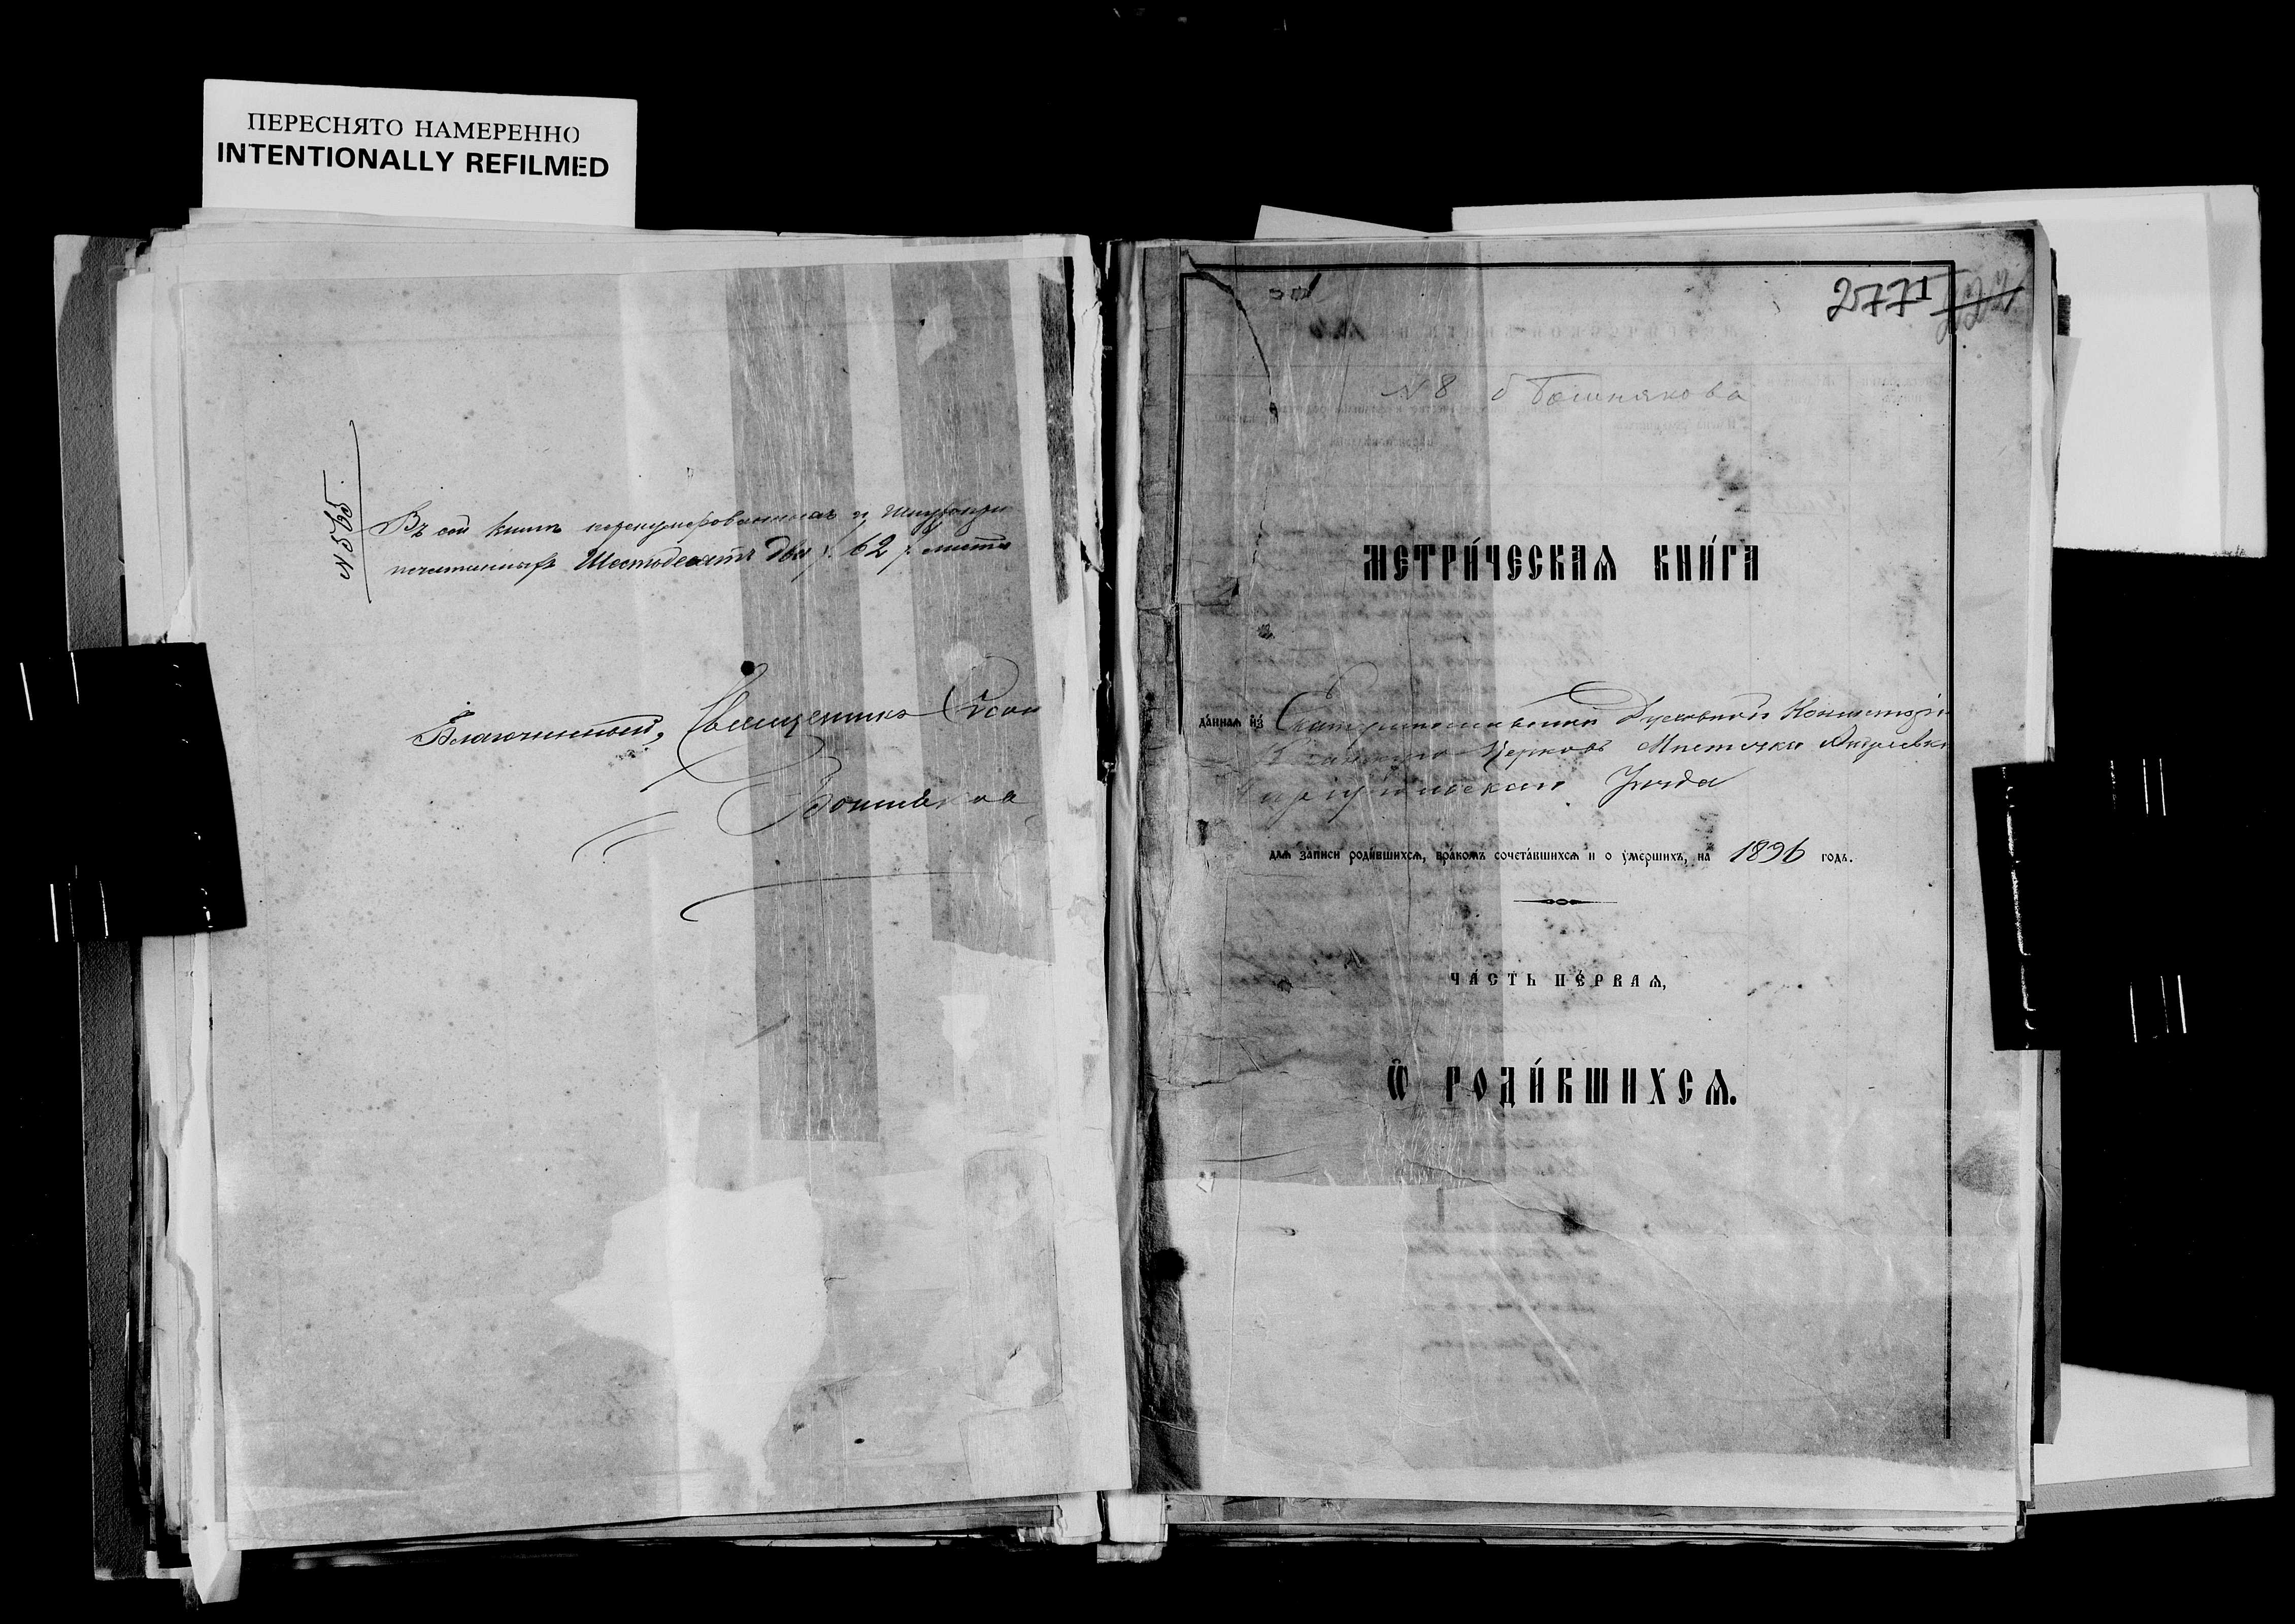 ПЕРЕСНЯТО НАМЕРЕННО
INTENTIONALLY REFILMED
N 565.
Въ сей книгѣ перенумерованныхъ и шнуропри
печатанныхъ Шестьдесятъ два /: 62 /: листа
Благочинный, Священникъ
2771
N 8 о Бошнякова
МЕТРИ́ЧЕСКАѦ КНИ́ГА
да́ннаѧ и҆з̾ Екатеринославской Духовной Консисторіи
Церковь Мѣстечка
Уѣзда
длѧ за́писи роди́вшихсѧ, бра́комъ сочета́вшихсѧ и о ᲂу҆ме́ршихъ, на 1896 годъ.
ЧА́СТЬ ПЕ́РВАѦ,
Ѽ РОДИ́ВШИХСѦ.